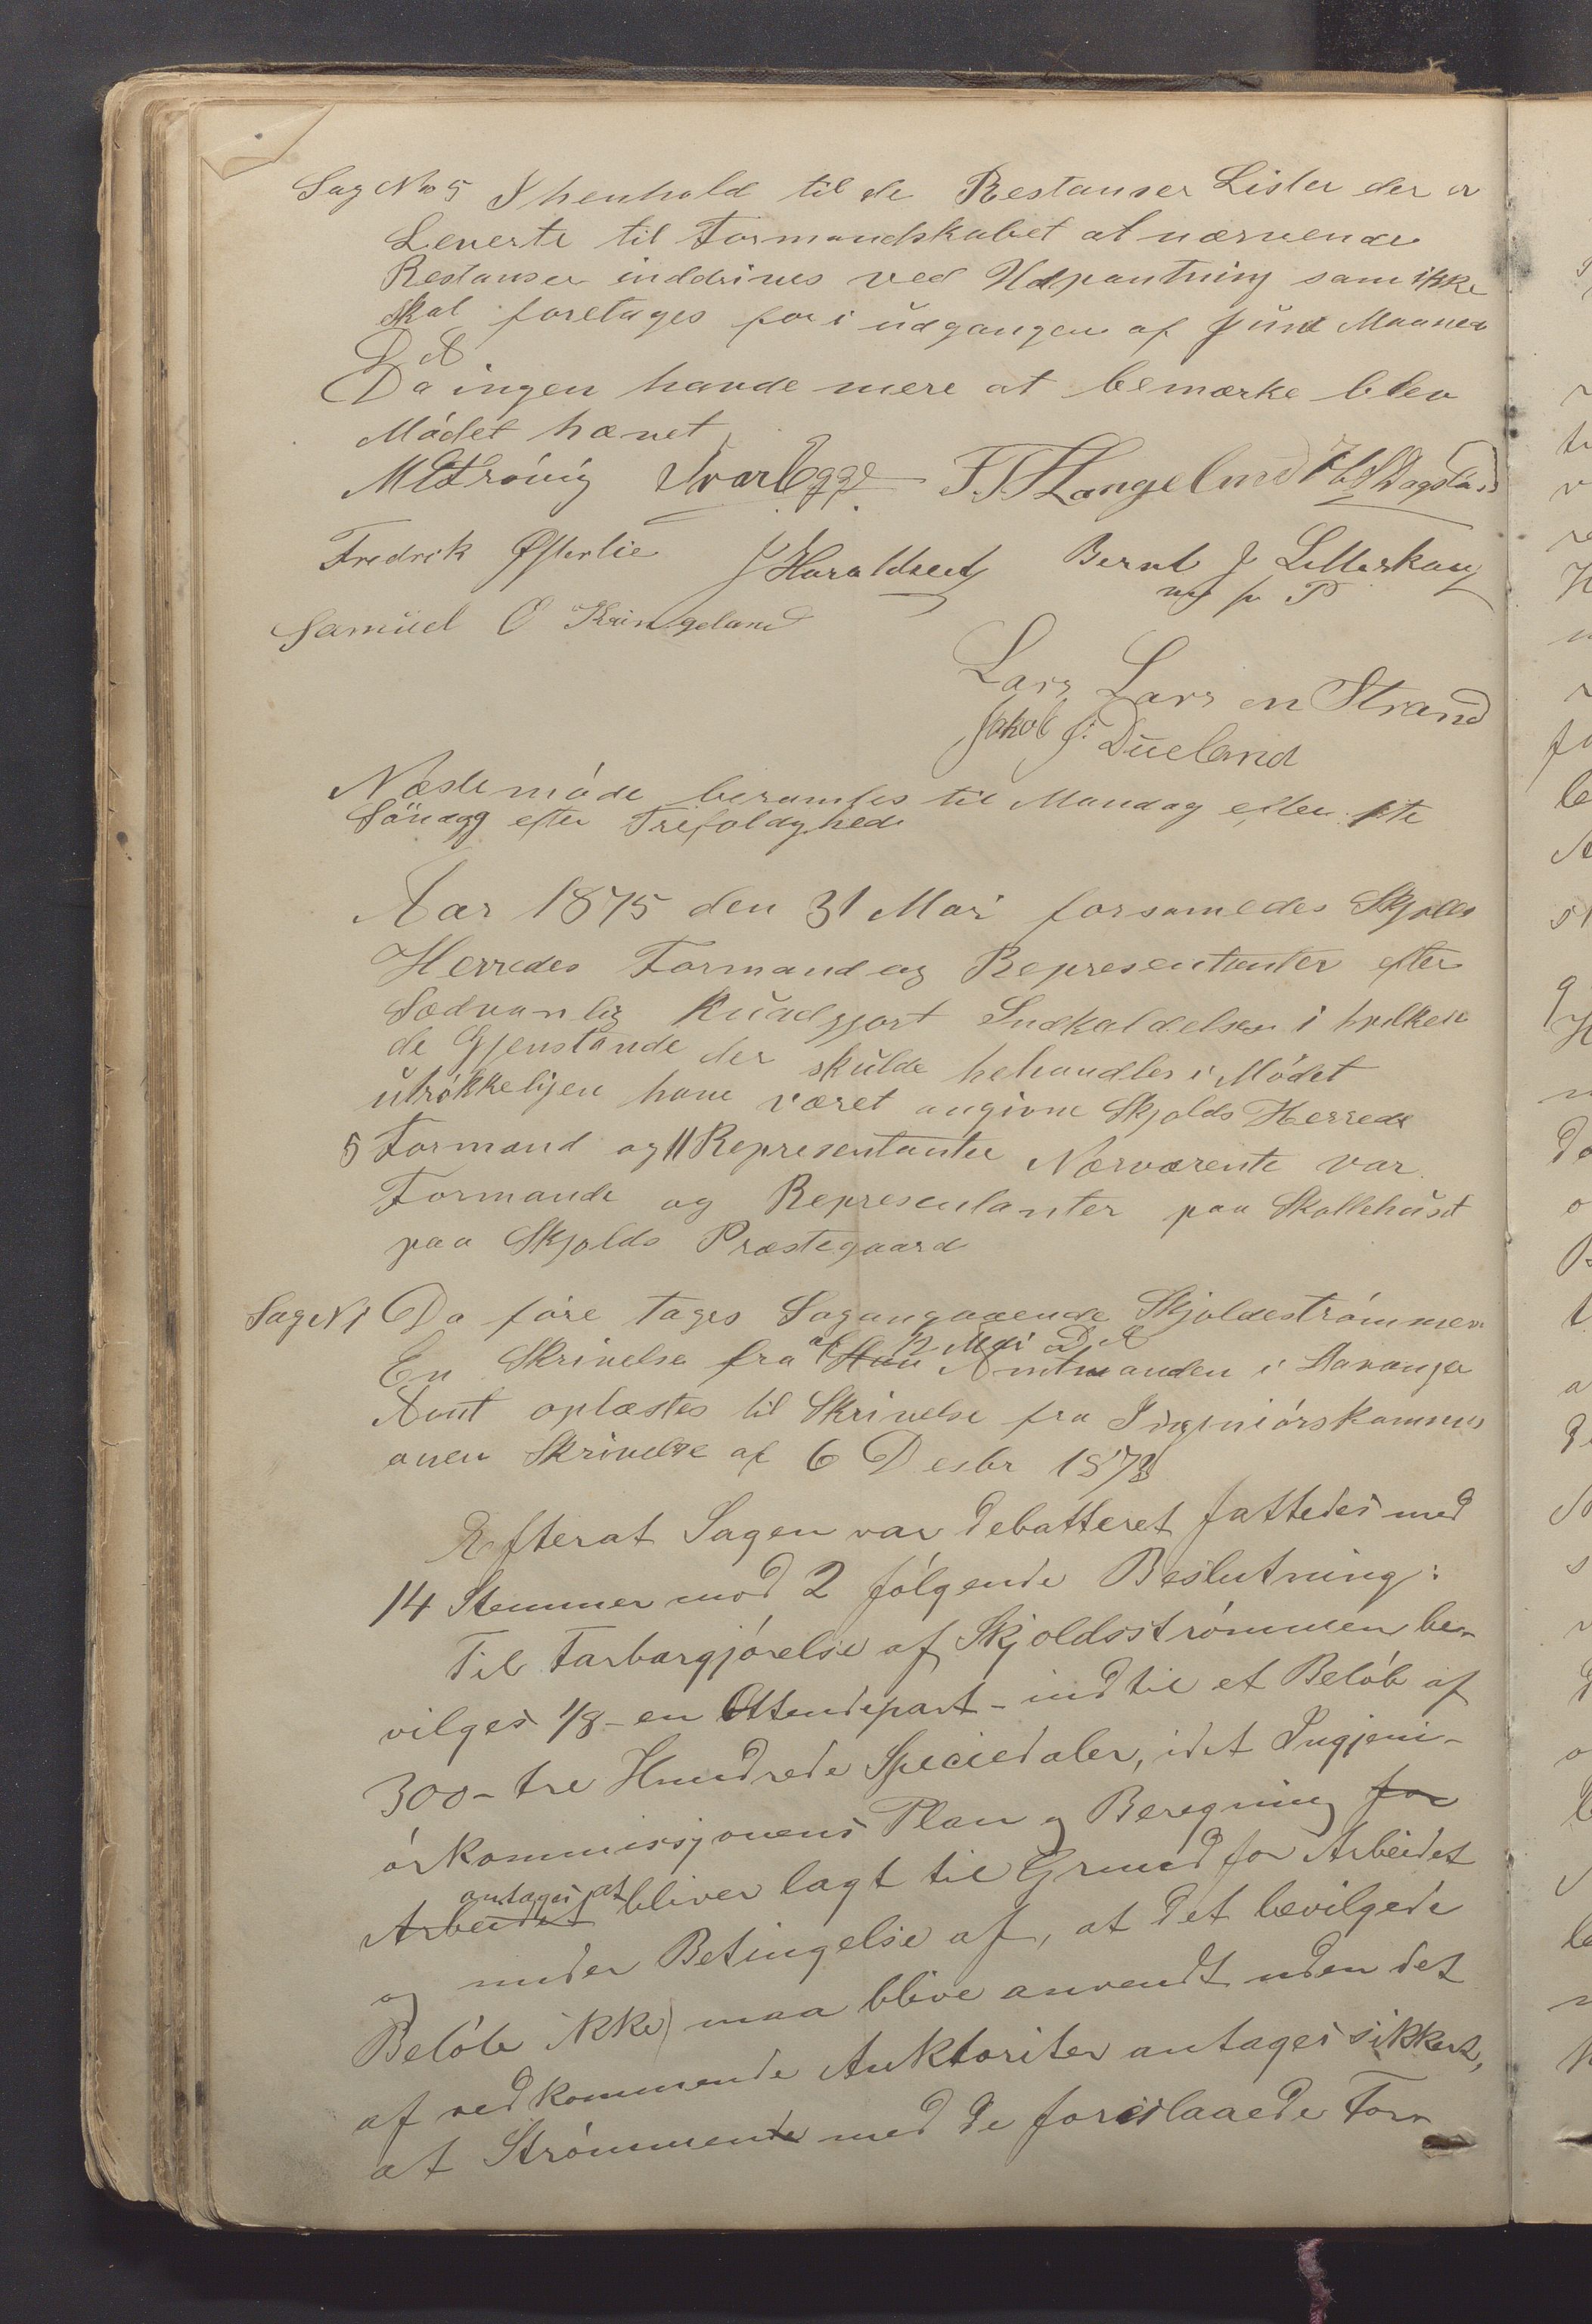 Sag No 5 I henhold til de Restanser Lister der er
Leverte til Formandskabet at nærvende
Restanser inddrives ved Udpantning som ikke
skal foretages for i udgangen af Juni Maaned
D A
Da ingen havde mere at bemærke blev
Mødet hævet
Ivar Egge F. T. Langeland
Fredrik Østerlie J Haraldseid Bernt J Litlerskog
m f P
Samuel O Kringeland
Lars Lars en Strand
Jakob J. Dueland
Næste møde beramtes til Mandag efter 1ste
Sönagg efter Trefoldighed
Aar 1875 den 31 Mai forsamledes Skjolds
Herredes Formand og Represententer efter
Sædvanlig Kundgjort Indkaldelse i hvilken
de Gjenstande der skulde behandles i Mødet
utrøkkeligen have været angivne Skjolds Herrede
5 Formand og 11 Representanter Nærværente var
Formande og Representanter paa Skollehuset
paa Skjolds Præstegaard
Sag N 1 Da före tages Sagangaaende Skjoldestrømmen
af 12 Mai D A
En Skrivelse fra Stav Amtmanden i Stavanger
Amt oplæstes til Skrivelse fra Ingeniörskommis
onen Skrivelse af 6 Desbr 1873
Efterat Sagen var debatteret fattedes med
14 Stemmer mod 2 følgende Beslutning:
Til Farbargjørelse af Skjoldsstrømmen be-
vilges 1/8 - en Ottendepart - indtil et Beløb af
300 - tre Hundrede Speciedaler, idet Ingjeni-
ørkommissjonens Plan og Beregning for
antages at
Arbeidet bliver lagt til Grund for Arbeidet
og under Betingelse af, at det bevilgede
Beløb ikke maa blive anvendt uden det
af vedkommende Auktoriter antages sikkert,
at Strømmende med de foreslaaede For-